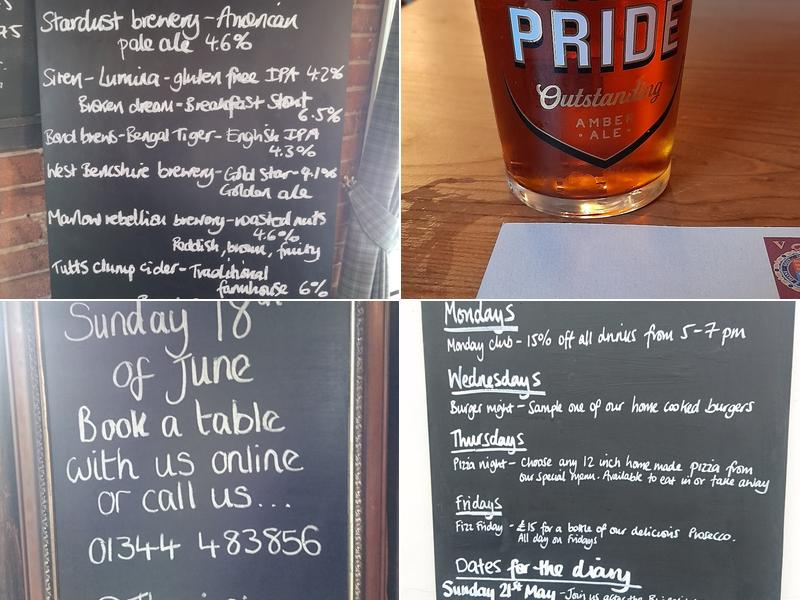 Stardust brewery - American
pale ale 4.6%
Siren - Lumina - gluten free IPA 4.2%
Broken dream - Breakfast Stout
6.5%
Bond brews - Bengal Tiger - English IPA
4.3%
West Berkshire brewery - Gold Star - 4.1%
Golden ale
Marlow rebellion brewery - roasted nuts
4.6%
Reddish, brown, fruity
Tutts clump cider - Traditional
farmhouse 6%
PRIDE
Outstanding
AMBER
ALE
Sunday 18
of June
Book a table
with us online
or call us...
01344 483856
Mondays
Monday club - 15% off all drinks from 5-7pm
Wednesdays
Burger night - Sample one of our home cooked burgers
Thursdays
Pizza night - Choose any 12 inch home made pizza from
our special menu. Available to eat in or take away
Fridays
Fizz Friday - £15 for a bottle of our delicious Prosecco.
All day on Fridays
Dates for the diary
Sunday 21st May - Join us after the